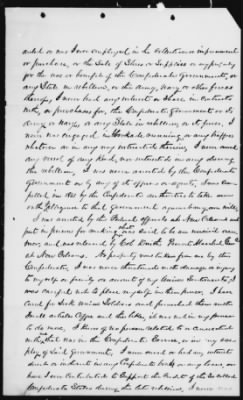 aided or was I ever employed, in the collection or impressment
or purchase, or the Sale of Stores or Supplies or any property
for the use or benefit of the Confederate Government, or
any State in rebellion, or the Army, Navy or other forces
thereof, I never had any interest or Share in Contracts
with, or purchases for, the Confederate Government or its
Army or Navy or any State in rebellion or its forces, I
was not engaged in blockade running or any traffic
whatever or in any way interested therein, I never owned
any vessel of any kind, nor interested in any during
the rebellion, I was never arrested by the Confederate
Government or by any of its officers or agents, I was
by the Confederate authorities to take
Allegiance to said government against my own will,
I was arrested by the Federal officials at New Orleans and
put in prison for making what was said to be an
and was released by Col Provost Marshal Genl
at New Orleans. No property was taken from me by the
Confederates, I was never threatened with damage or injury
to myself or family on account of my Union Sentiments, I
was compelled to place in my
cared for Sick Union Soldiers and furnished them with
and the like, it was not in my power
to do more, I know of no person related to or connected
with, that was in the Confederate Service, or in any
of said government, I never owned or had any interest
in Confederate bonds or any loans,
have I ever contributed to Support the Credit of the So Called
Confederate States during the late rebellion, I never